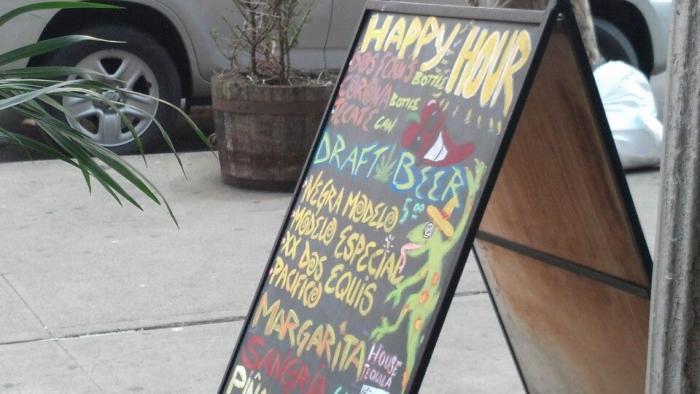 HAPPY HOUR
DOS EQUIS BOTTLE
CORONA BOTTLE
TECATE CAN
DRAFT BEER
NEGRA MODELO 5.00
MODELO ESPECIAL
XX DOS EQUIS
PACIFICO
MARGARITA HOUSE TEQUILA
SANGRIA
PIÑA